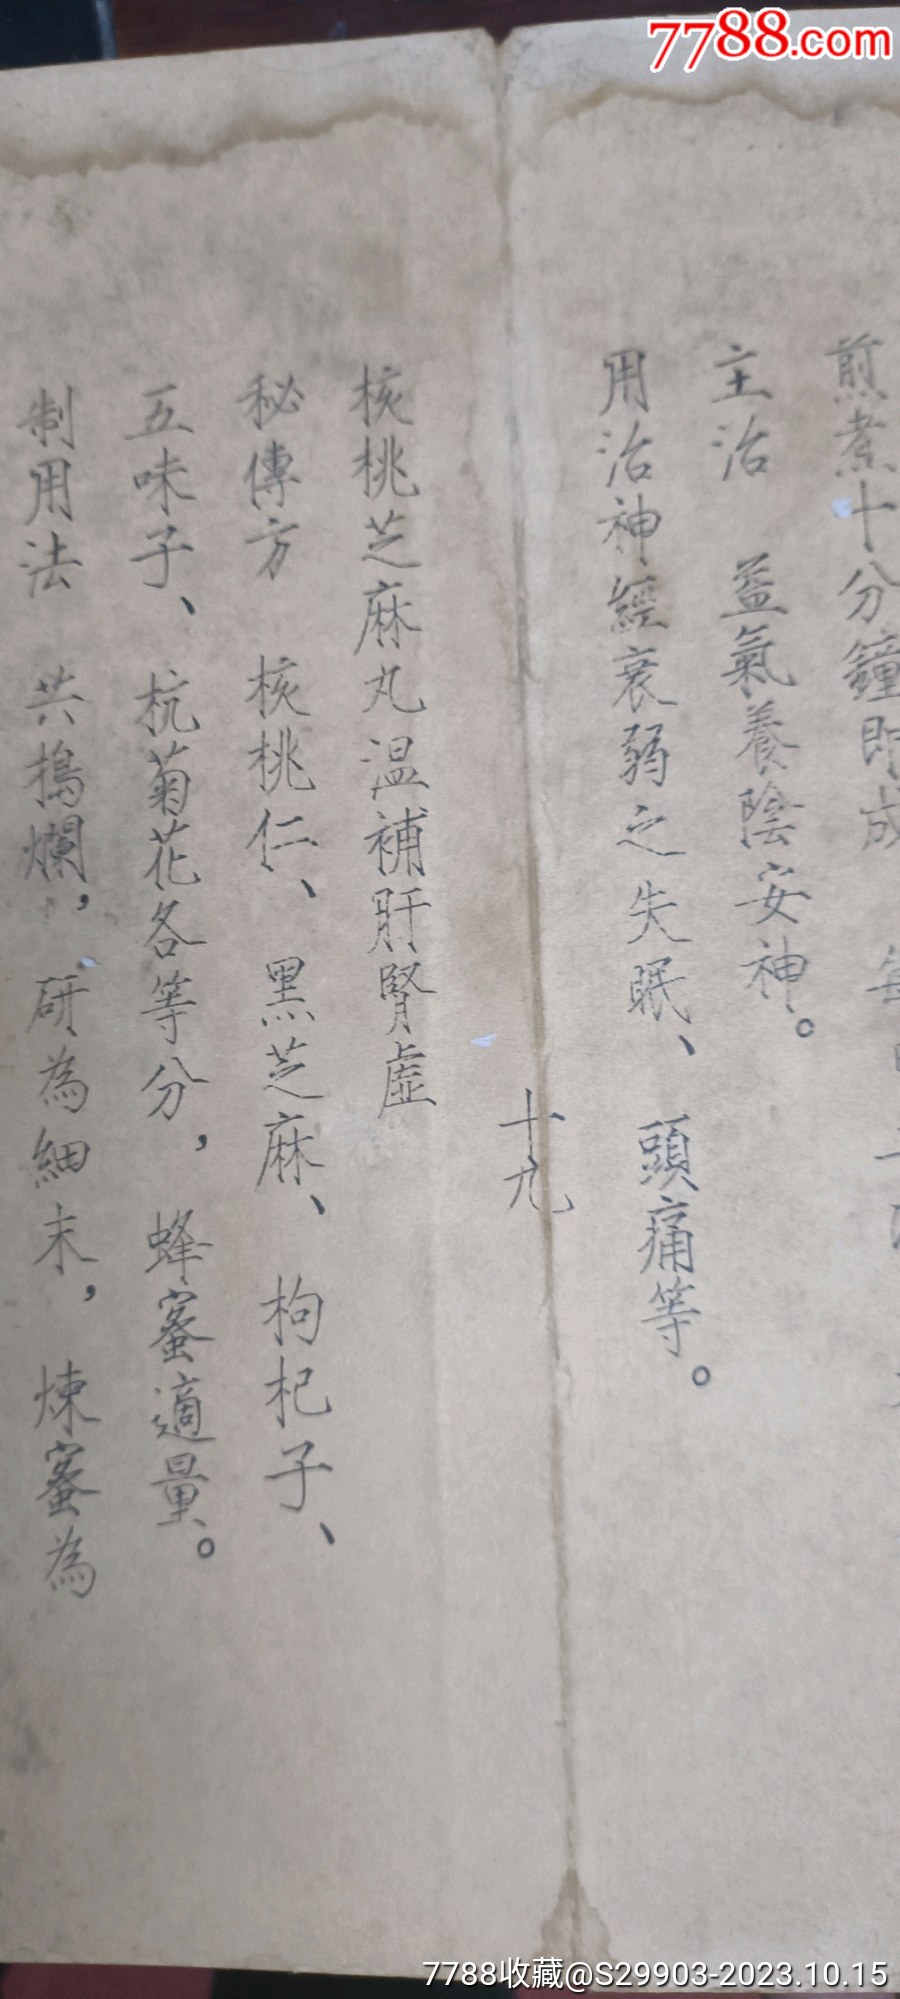 7788.com
煎煮十分鐘即成 每日
主治 益氣養陰安神。
用治神經衰弱之失眠、頭痛等。
十九
核桃芝麻丸温補肝腎虛
秘傳方 核桃仁、黑芝麻、枸杞子、
五味子、杭菊花各等分，蜂蜜適量。
制用法 共搗爛，研為細末，煉蜜為
7788收藏@S29903-2023.10.15